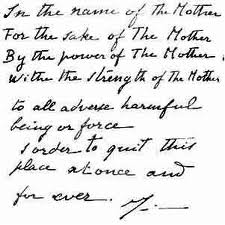 In the name of the Mother
For the sake of The Mother
By the power of The Mother
Withe the strength of the Mother
to all adverse harmful
being or force
I order to quit this
place at once and
for ever.